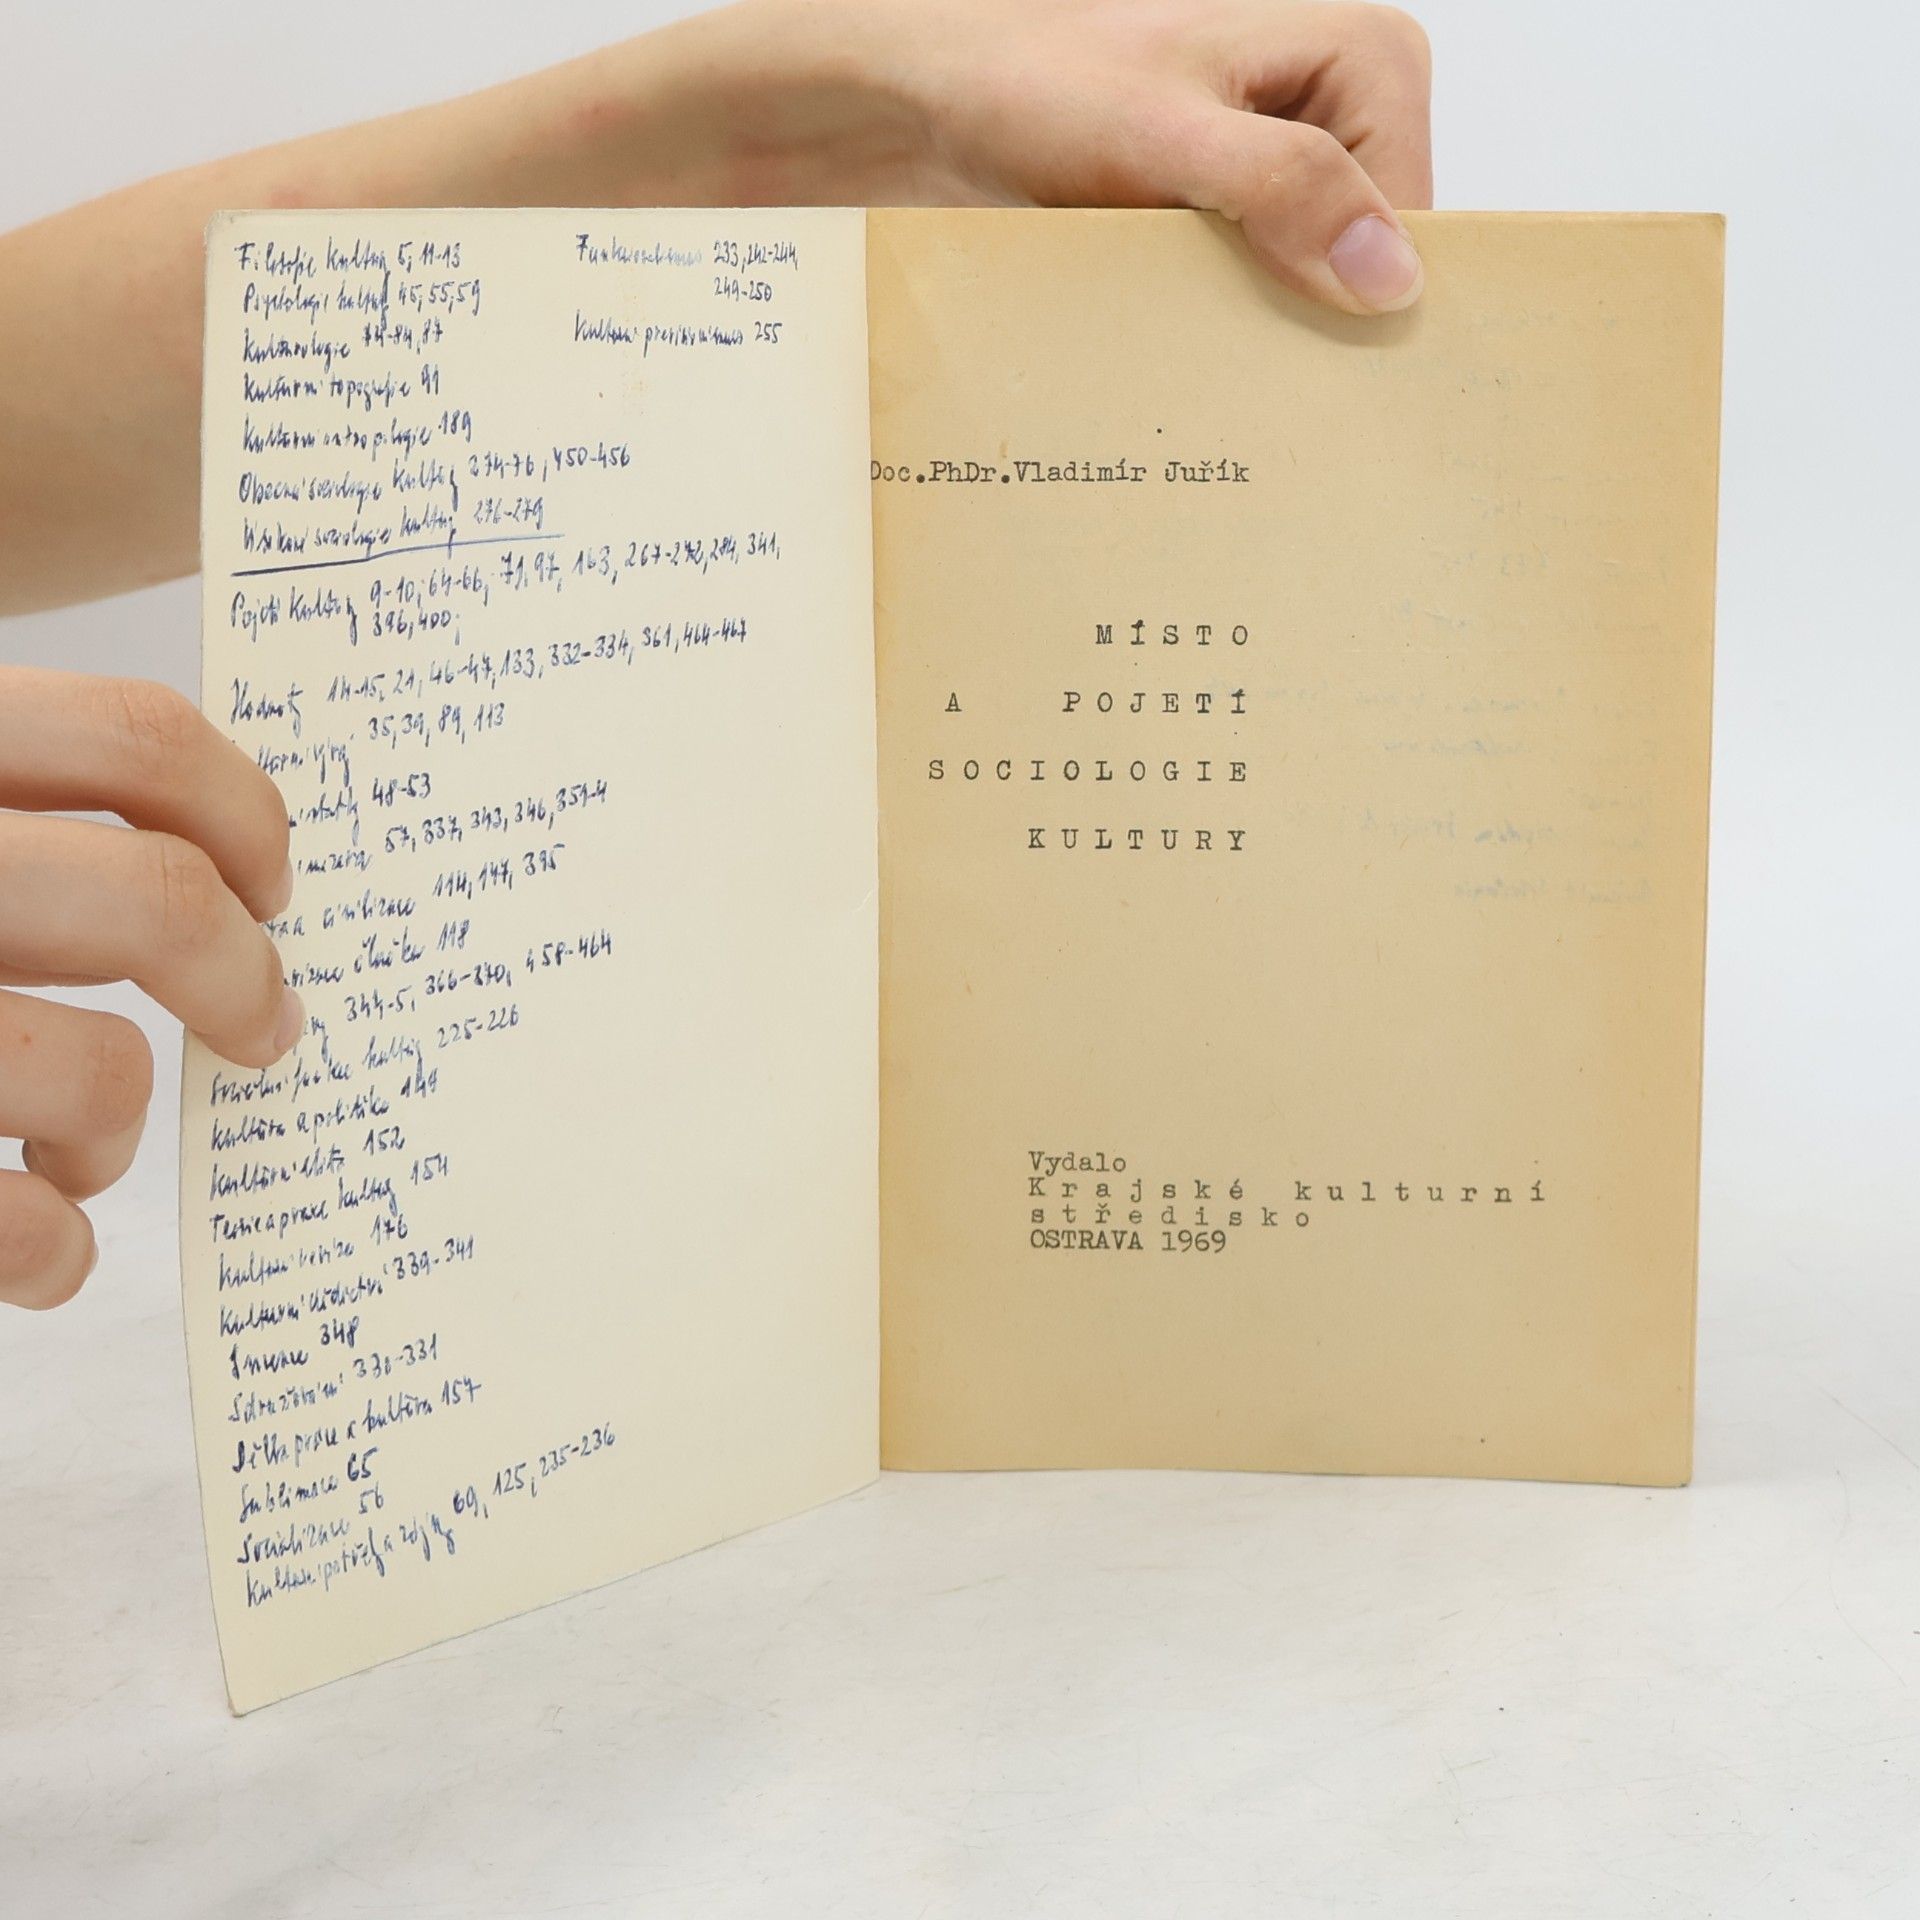 Filosofie kultury 5, 11-13
Psychologie kultury 45, 55, 59
Kulturologie 74-84, 87
Kulturní topografie 91
Kulturní antropologie 189
Obecná sociologie kultury 274-76, 450-456
sociologie kultury 276-279
Pojetí kultury 9-10, 64-66, 71, 97, 163, 267-272, 284, 341,
396, 400;
Hodnoty 14-15, 21, 46-47, 133, 332-334, 361, 464-467
35, 39, 89, 113
48-53
57, 337, 343, 346, 351-4
a civilizace 114, 147, 395
člověka 118
344-5, 366-370, 458-464
Sociální funkce kultury 225-226
Kultura a politika 147
Kulturní elita 152
Teorie a praxe kultury 154
Kulturní 176
Kulturní dědictví 339-341
348
Sdružování 330-331
Dělba práce a kultura 157
Sublimace 65
Socializace 56
Kulturní potřeby a zájmy 69, 125, 235-236
Funkcionalismus 233, 242-244,
249-250
Kulturní 255
Doc.PhDr.Vladimír Juřík
MÍSTO
A POJETÍ
SOCIOLOGIE
KULTURY
Vydalo
Krajské kulturní
středisko
OSTRAVA 1969